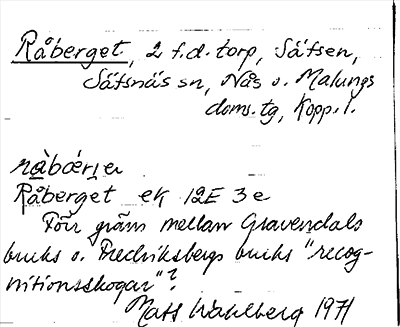 Råberget, 2 f.d. torp, Säfsen,
Säfsnäs sn, Nås o. Malungs
doms.tg, Kopp. l.
Råberget ek 12E 3e
Förr gräns mellan Gravendals
bruks o. Fredriksbergs bruks "recog-
nitionsskogar"?
Mats Wahlberg 1971